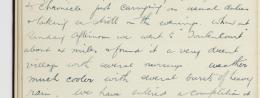 to chronicle just carrying on usual duties
& taking a stroll in the evenings. When on
Sunday afternoon we went to
about 2½ miles & found it a very decent
village with several nursing weather
much cooler with several bursts of heavy
rain. We have entered a competition at